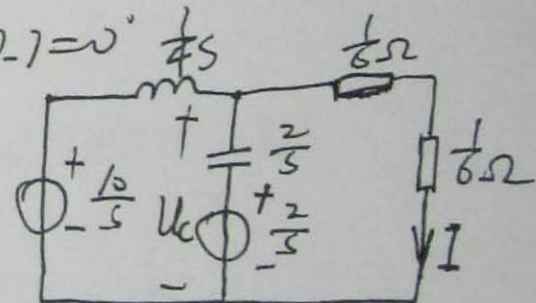 -)=0
1/4 S
1/6 Ω
+
2/S
1/6 Ω
+
10/S
-
Uc
+
2/S
-
-
I